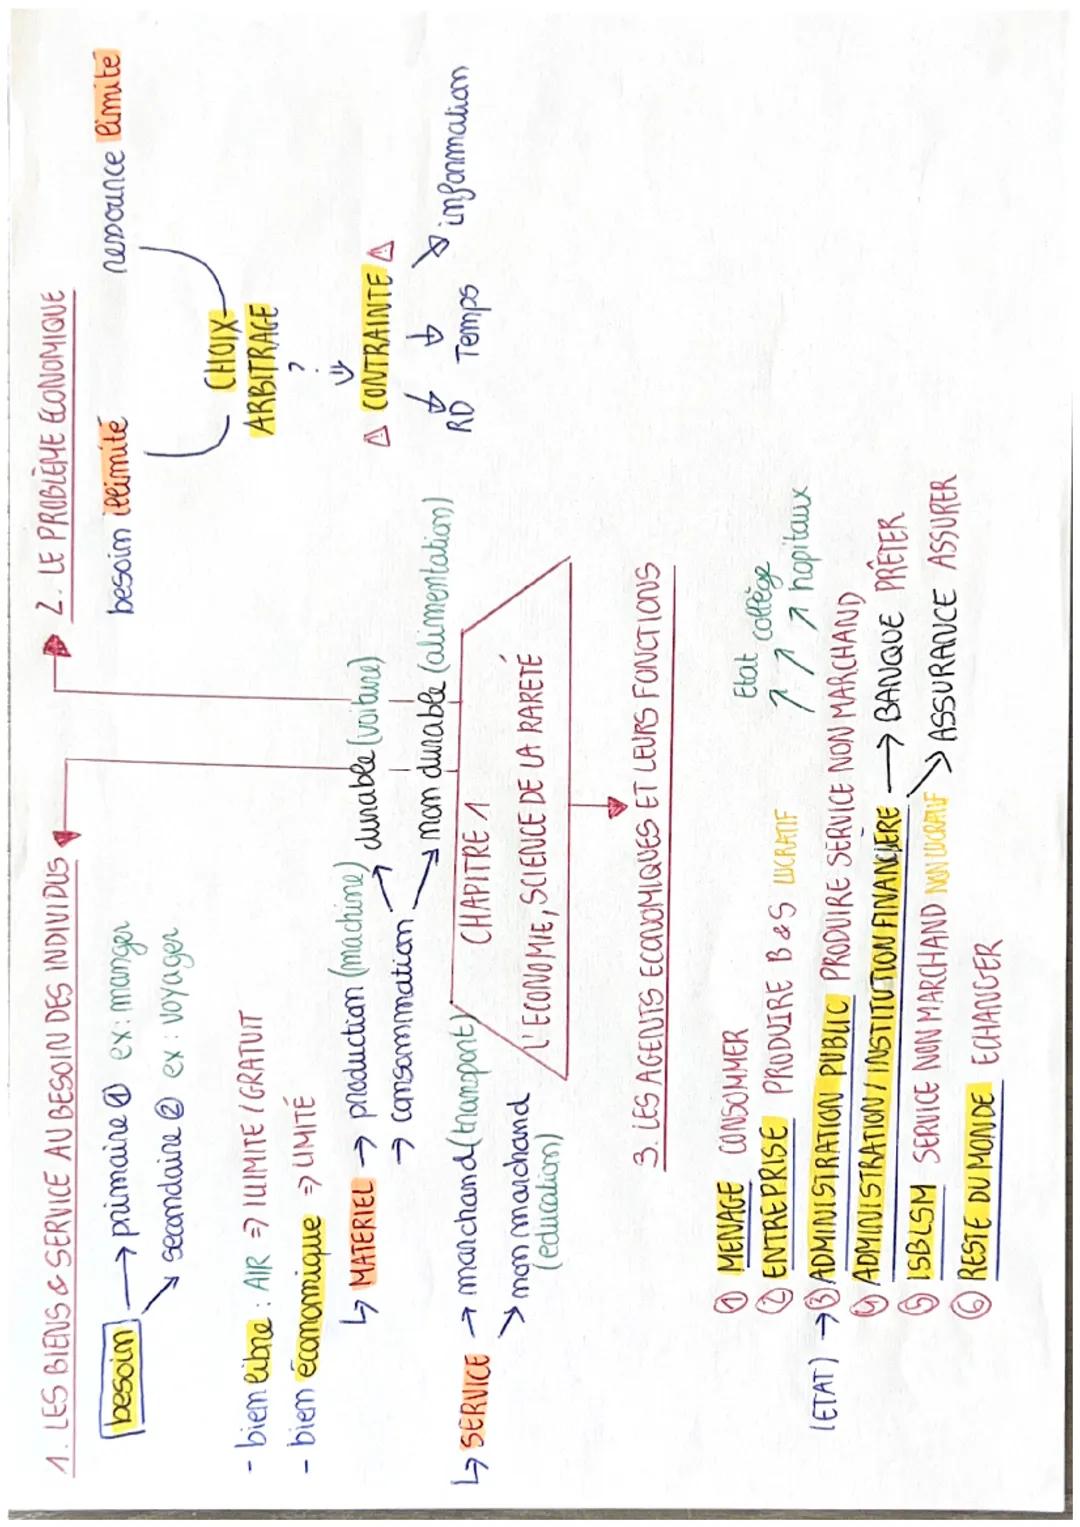 1. LES BIENS & SERVICE AU BESOIN DES INDIVIDUS
besoin → primaire ① ex : manger
↘ secondaire ② ex : voyager
- bien libre : AIR ⇒ ILLIMITE / GRATUIT
- bien économique ⇒ LIMITÉ
↳ MATERIEL → production (machine)
→ consommation → durable (voiture)
→ non durable (alimentation)
↳ SERVICE → marchand (transport)
↘ non marchand
(education)
2. LE PROBLÈME ECONOMIQUE
besoin illimité ressource limité
CHOIX
ARBITRAGE
?
⇓
⚠ CONTRAINTE ⚠
RD Temps information
CHAPITRE 1
L'ECONOMIE, SCIENCE DE LA RARETÉ
3. LES AGENTS ECONOMIQUES ET LEURS FONCTIONS
① MENAGE CONSOMMER
② ENTREPRISE PRODUIRE B & S LUCRATIF
Etat collège hopitaux
(ETAT) → ③ ADMINISTRATION PUBLIC PRODUIRE SERVICE NON MARCHAND
④ ADMINISTRATION / INSTITUTION FINANCIERE → BANQUE PRÊTER
↘ ASSURANCE ASSURER
⑤ ISBLSM SERVICE NON MARCHAND NON LUCRATIF
⑥ RESTE DU MONDE ECHANGER